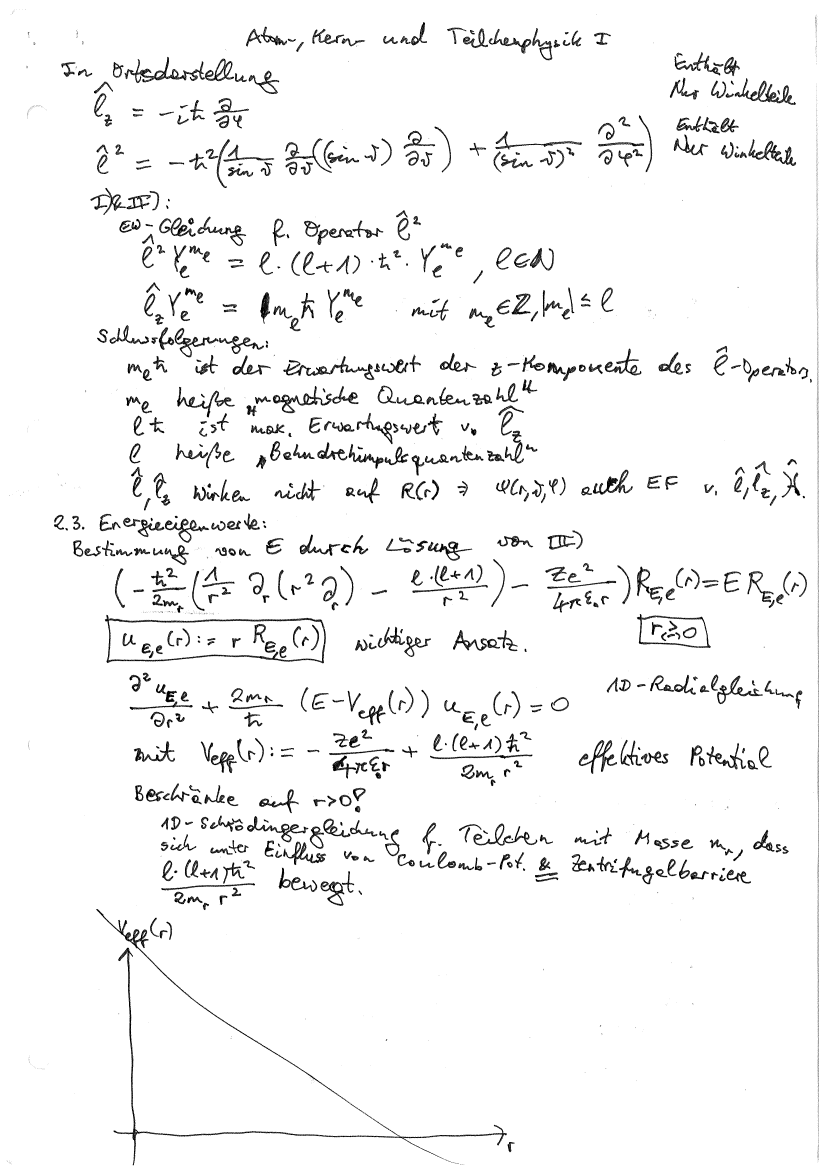 Atom-, Kern- und Teilchenphysik I
In Ortsdarstellung
l̂_z = -iħ ∂/∂φ Enthält Nur Winkelteile
l̂² = -ħ² (1/(sin ϑ) ∂/∂ϑ ((sin ϑ) ∂/∂ϑ) + 1/(sin ϑ)² ∂²/∂φ²) Enthält Nur Winkelteile
I) & II):
EW-Gleichung f. Operator l̂²
l̂² Y_l^{m_l} = l · (l+1) · ħ² · Y_l^{m_l}, l∈ℕ
l̂_z Y_l^{m_l} = m_l ħ Y_l^{m_l} mit m_l ∈ ℤ, |m_l| ≤ l
Schlussfolgerungen:
m_l ħ ist der Erwartungswert der z-Komponente des l̂-Operators.
m_l heiße „magnetische Quantenzahl"
l ħ ist max. Erwartungswert v. l̂_z
l heiße „Bahndrehimpulsquantenzahl"
l̂, l̂_z wirken nicht auf R(r) ⇒ φ(r,ϑ,φ) auch EF v. l̂, l̂_z, Ĥ.
2.3. Energieeigenwerte:
Bestimmung von E durch Lösung von III)
(-ħ²/2m_r (1/r² ∂_r (r² ∂_r) - l·(l+1)/r²) - Ze²/4πε₀r) R_{E,l}(r) = E R_{E,l}(r)
u_{E,l}(r) := r R_{E,l}(r) wichtiger Ansatz. r ≥ 0
∂²u_{E,l}/∂r² + 2m_r/ħ (E - V_eff(r)) u_{E,l}(r) = 0 1D-Radialgleichung
mit V_eff(r) := - Ze²/4πε₀r + l·(l+1)ħ²/2m_r r² effektives Potential
Beschränke auf r>0!
1D-Schrödingergleichung f. Teilchen mit Masse m_r, dass
sich unter Einfluss von Coulomb-Pot. & Zentrifugalbarriere
l·(l+1)ħ²/2m_r r² bewegt.
V_eff(r)
r